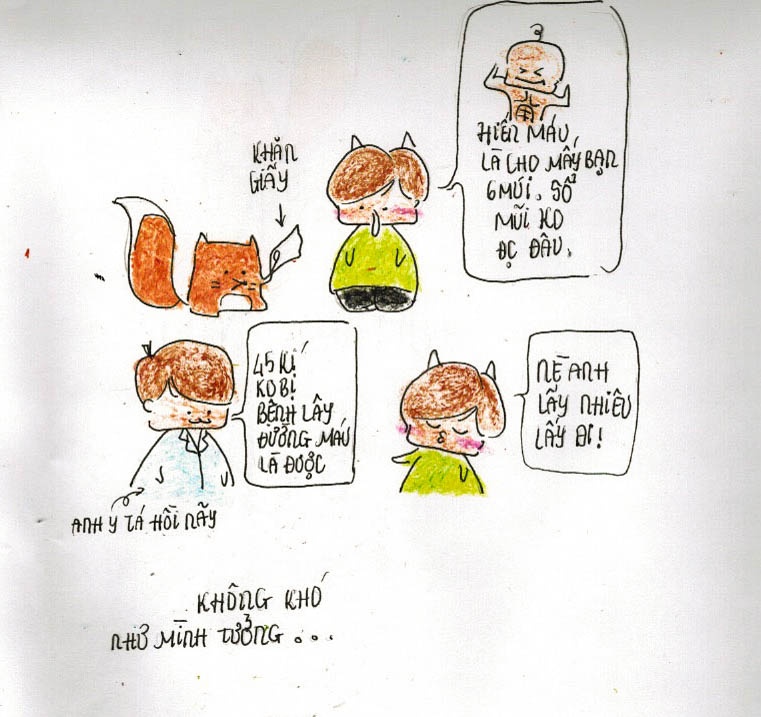 KHĂN
GIẤY
HIẾN MÁU
LÀ CHO MẤY BẠN
6 MÚI. SỔ
MŨI KO
ĐC ĐÂU.
45 KÍ
KO BỊ
BỆNH LÂY
ĐƯỜNG MÁU
LÀ ĐƯỢC
NÈ ANH
LẤY NHIÊU
LẤY ĐI!
ANH Y TÁ HỒI NÃY
KHÔNG KHÓ
NHƯ MÌNH TƯỞNG...